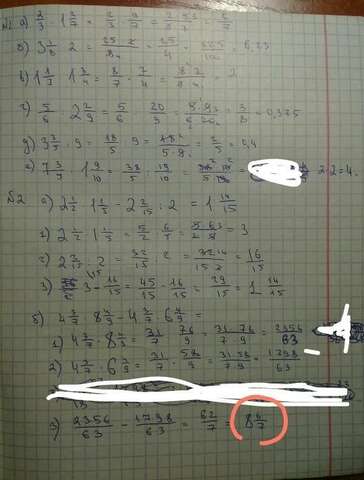 №1 а) 2/3 · 1 2/7 = 2/3 · 9/7 =
б) 3 1/8 · 2 = 25·2/8 = 25/4 = = 6,25
в) 1 1/7 · 1 3/4 = 8/7 · 7/4 = = 2
г) 5/6 : 2 2/9 = 5/6 : 20/9 = = 3/8 = 0,375
д) 3 3/5 : 9 = 18/5 : 9 = = 2/5 = 0,4
е) 7 3/5 : 1 9/10 = 38/5 : 19/10 = = 2·2 = 4.
№2 а) 2 1/2 · 1 1/5 - 2 2/15 : 2 = 1 14/15
1) 2 1/2 · 1 1/5 = 5/2 · 6/5 = = 3
2) 2 2/15 : 2 = 32/15 : 2 = = 16/15
3) 3 - 16/15 = 45/15 - 16/15 = 29/15 = 1 14/15
б) 4 3/7 · 8 4/9 - 4 3/7 · 6 4/9 =
1) 4 3/7 · 8 4/9 = 31/7 · 76/9 = 31·76/7·9 = 2356/63
2) 4 3/7 · 6 4/9 = 31/7 · 58/9 = 31·58/7·9 = 1798/63
3) 2356/63 - 1798/63 = 62/7 = 8 6/7